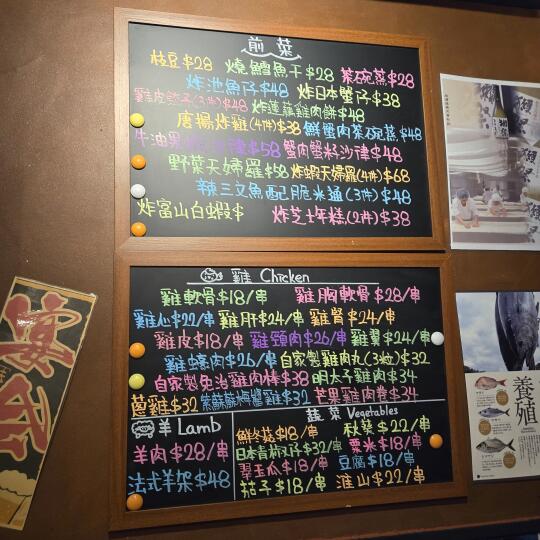 前菜
枝豆$28 燒鱈魚干$28 茶碗蒸$28
炸池魚仔$48 炸日本蟹仔$38
雞皮餃子(3件)$48 炸蓮藕雞肉餅$48
唐揚炸雞(4件)$38 鮮蟹肉茶碗蒸$48
牛油果 沙律$58 蟹肉蟹籽沙律$48
野菜天婦羅$58 炸蝦天婦羅(4件)$68
辣三文魚配脆米通(3件)$48
炸富山白蝦$ 炸芝士年糕(2件)$38
雞 Chicken
雞軟骨$18/串 雞胸軟骨$28/串
雞心$22/串 雞肝$24/串 雞腎$24/串
雞皮$18/串 雞頸肉$26/串 雞翼$24/串
雞蠔肉$26/串 自家製雞肉丸(3粒)$32
自家製免治雞肉棒$38 明太子雞$34
蔥雞$32 紫蘇梅醬雞$32 芒果雞肉卷$34
羊 Lamb
羊肉$28/串
法式羊架$48
蔬菜 Vegetables
鮮冬菇$18/串 秋葵$22/串
日本青椒仔$32/串 粟米$18/串
翠玉瓜$18/串 豆腐$18/串
茄子$18/串 淮山$22/串
宴会
養殖
獺祭